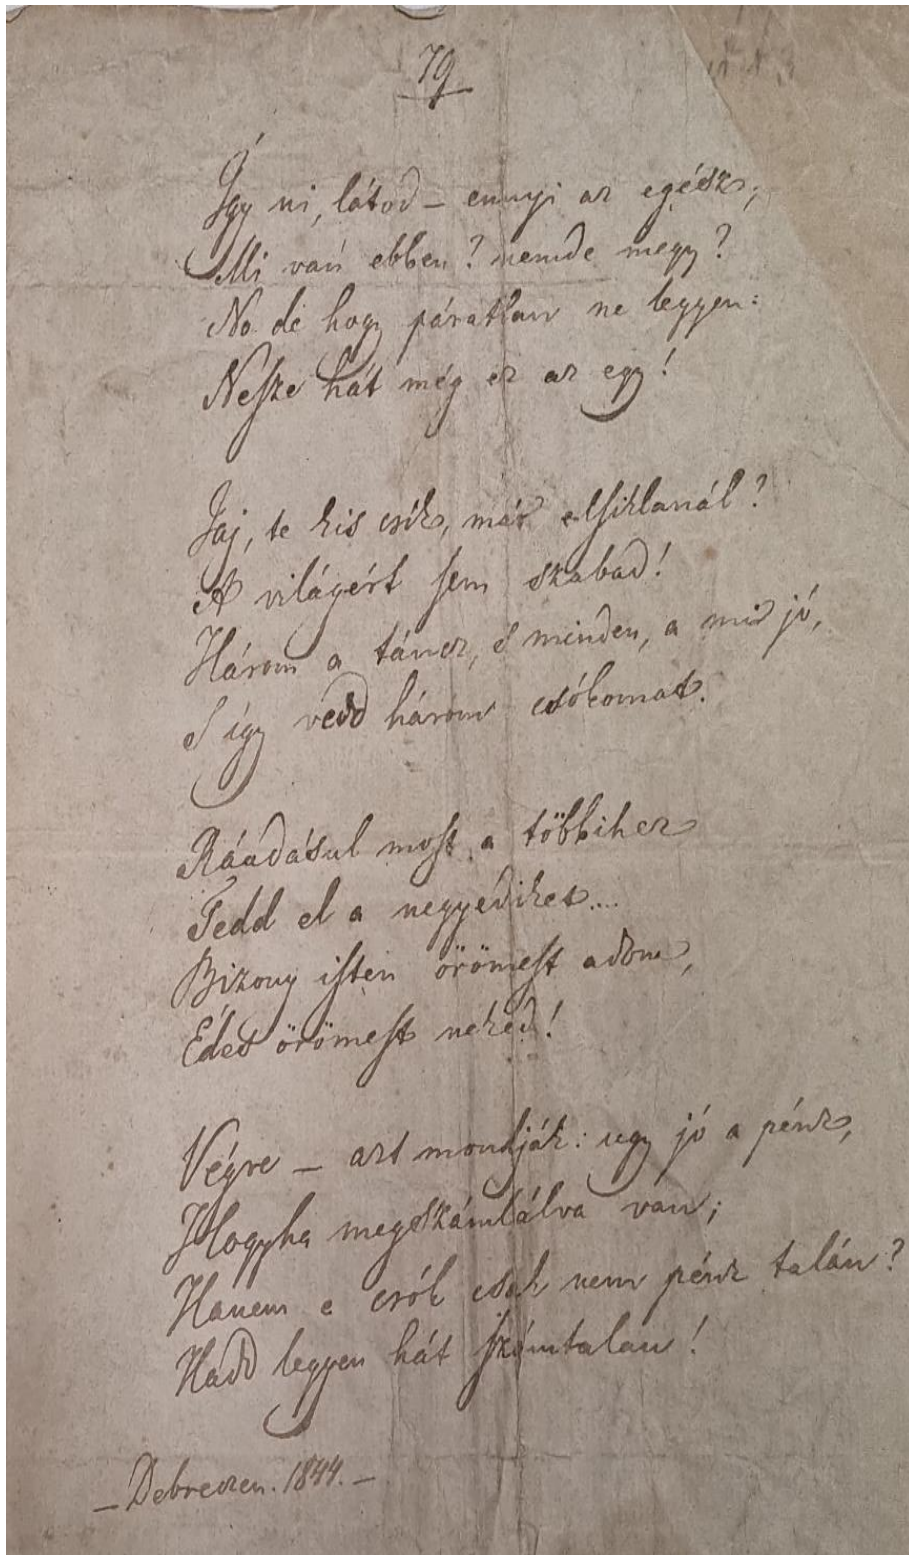 79
Így ni, látod – ennyi az egész;
Mi van ebben? nemde megy?
No de hogy páratlan ne legyen:
Nesze hát még ez az egy!
Jaj, te kis csík, már elsiklanál?
A világért sem szabad!
Három a táncz, s minden, a mi jó,
S igy vedd három csókomat.
Ráadásul most a többihez
Tedd el a negyediket....
Bizony isten örömest adom,
Édes örömest neked!
Végre – azt mondják: ugy jó a pénz,
Hogyha megszámlálva van;
Hanem e csók csak nem pénz talán?
Hadd legyen hát számtalan!
– Debreczen. 1844. –